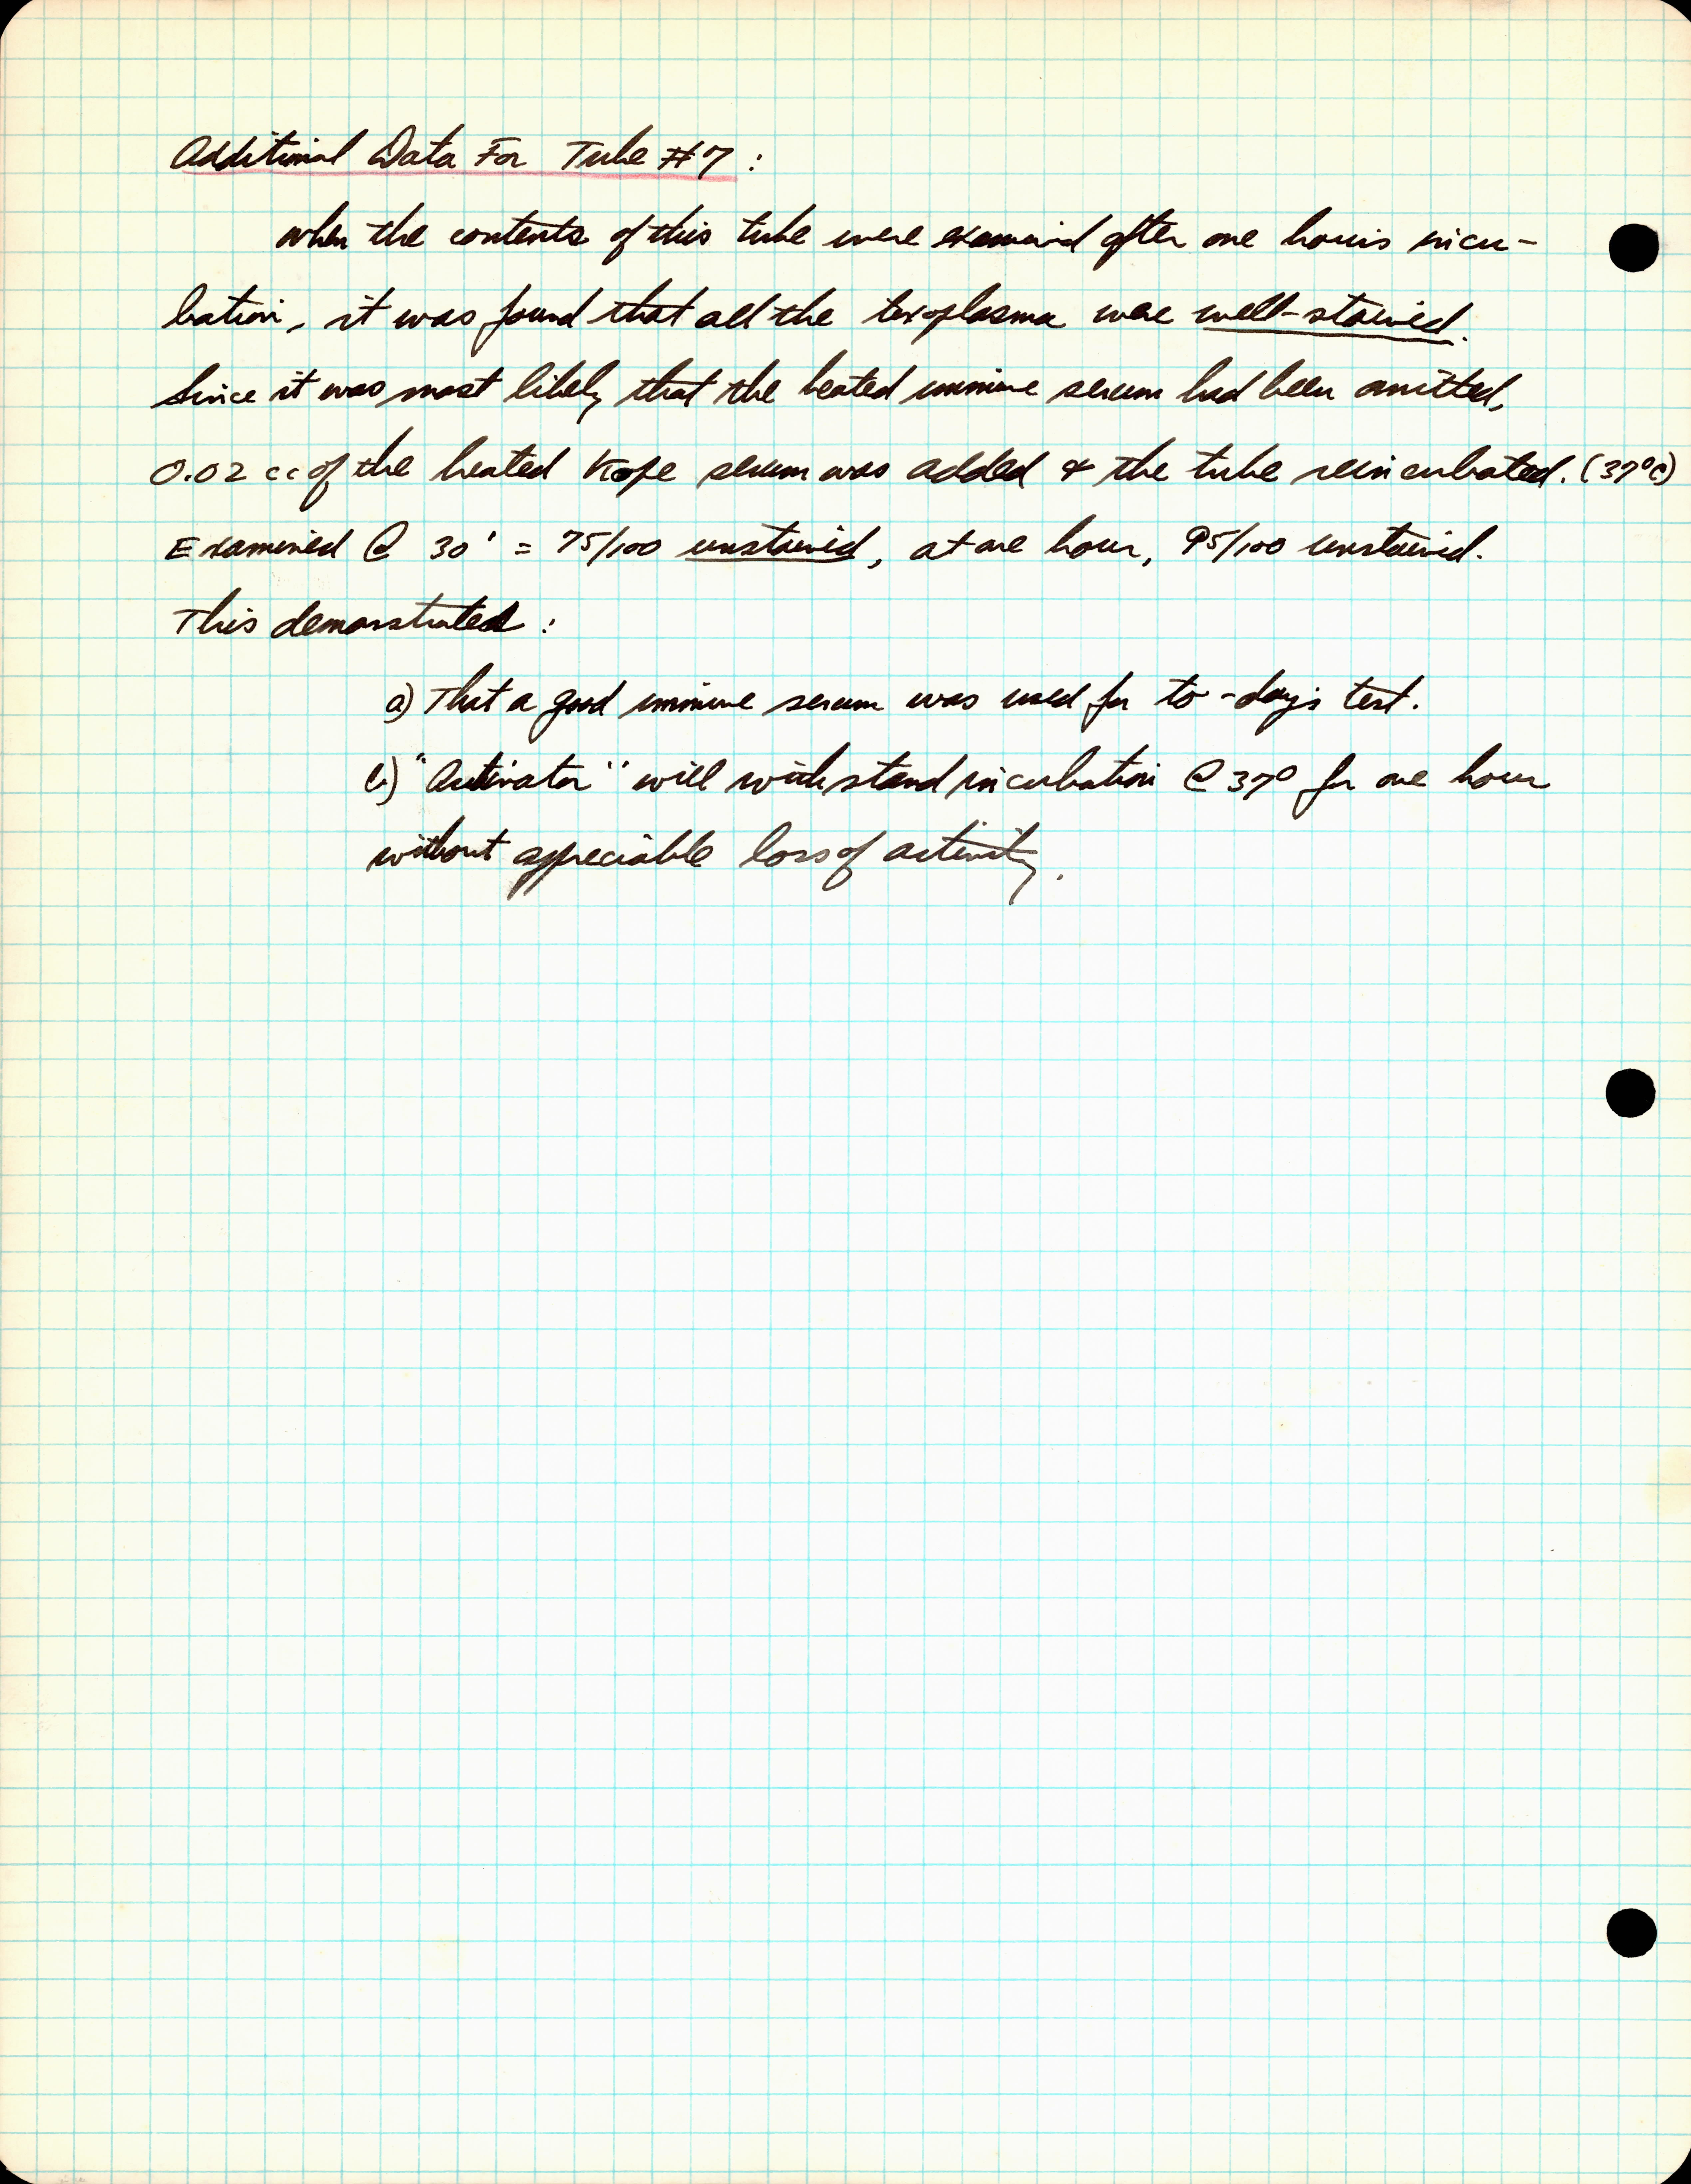 Additional Data For Tube #7:
when the contents of this tube were examined after one hours incu-
bation, it was found that all the toxoplasma were well-stained.
Since it was most likely that the heated immune serum had been omitted,
0.02 cc of the heated Kope serum was added & the tube reincubated. (37°C)
Examined @ 30' = 75/100 unstained, at one hour, 95/100 unstained.
This demonstrated:
a) That a good immune serum was used for to-day's test.
b) "Activator" will withstand incubation @ 37° for one hour
without appreciable loss of activity.